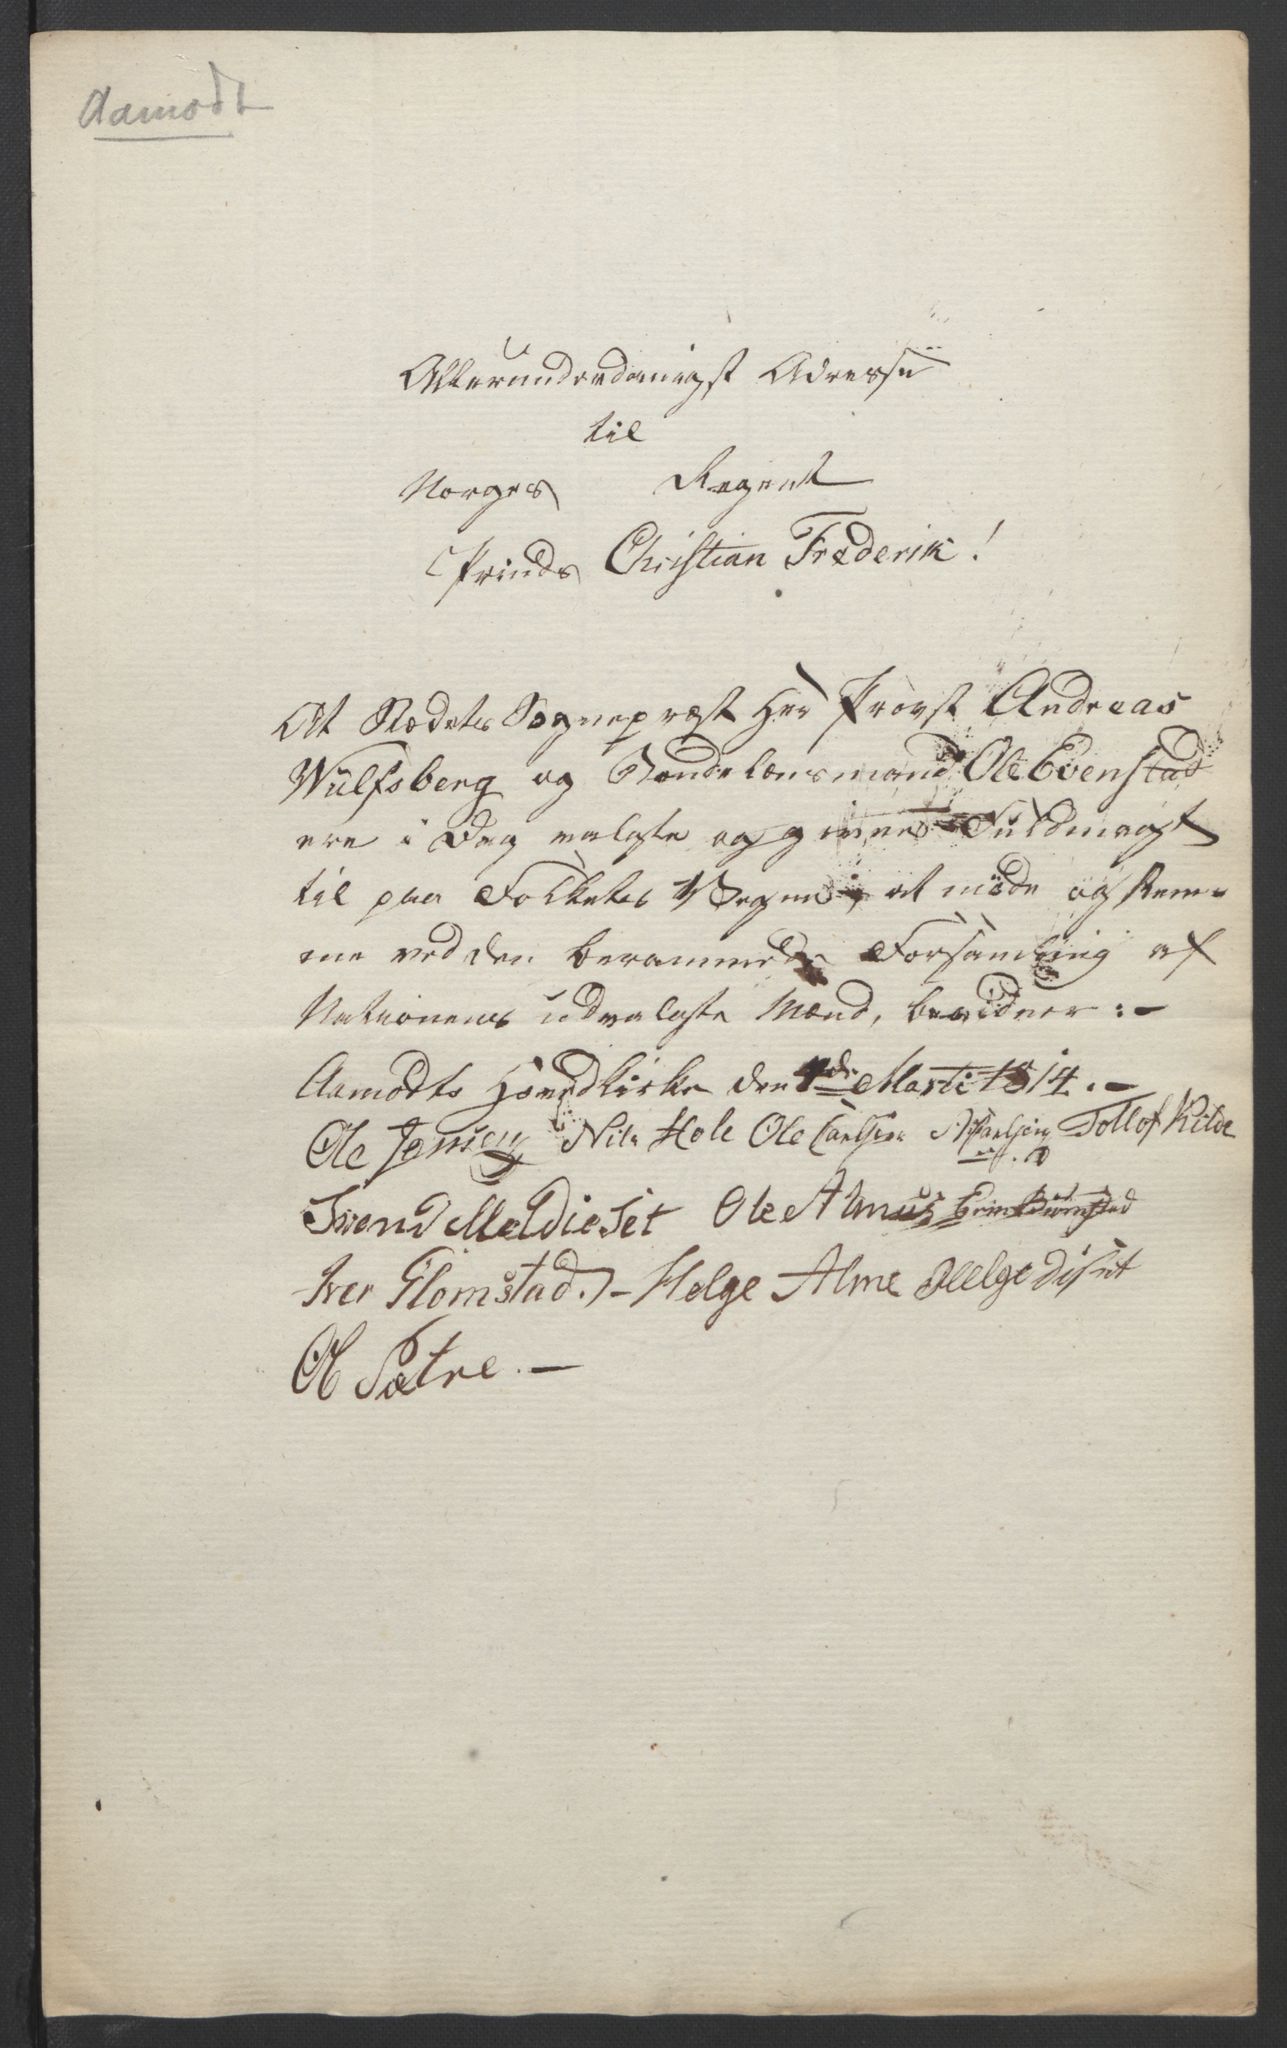 Aamodt
Allerunderdanigst Adresse
til
Norges Regent
Prinds Christian Frederik!
At Stædets Sognepræst Herr Provst Andreas
Wulfsberg og Bondelænsmand Ole Evenstad
ere i Dag valgte og givne Fuldmagt
til paa Folkets Vegne, at møde og stem-
me ved den berammede Forsamling af
Nationens udvalgte Mænd, bevidner:-
Aamodts Hovedkirke den Marti 1814.-
Ole Nils Hole Ole Carlsen Tollof Kilde
Svend Meldieset Ole Almus
Iver Glomstad.- Helge Alme Helge Diset
O Sætre.-